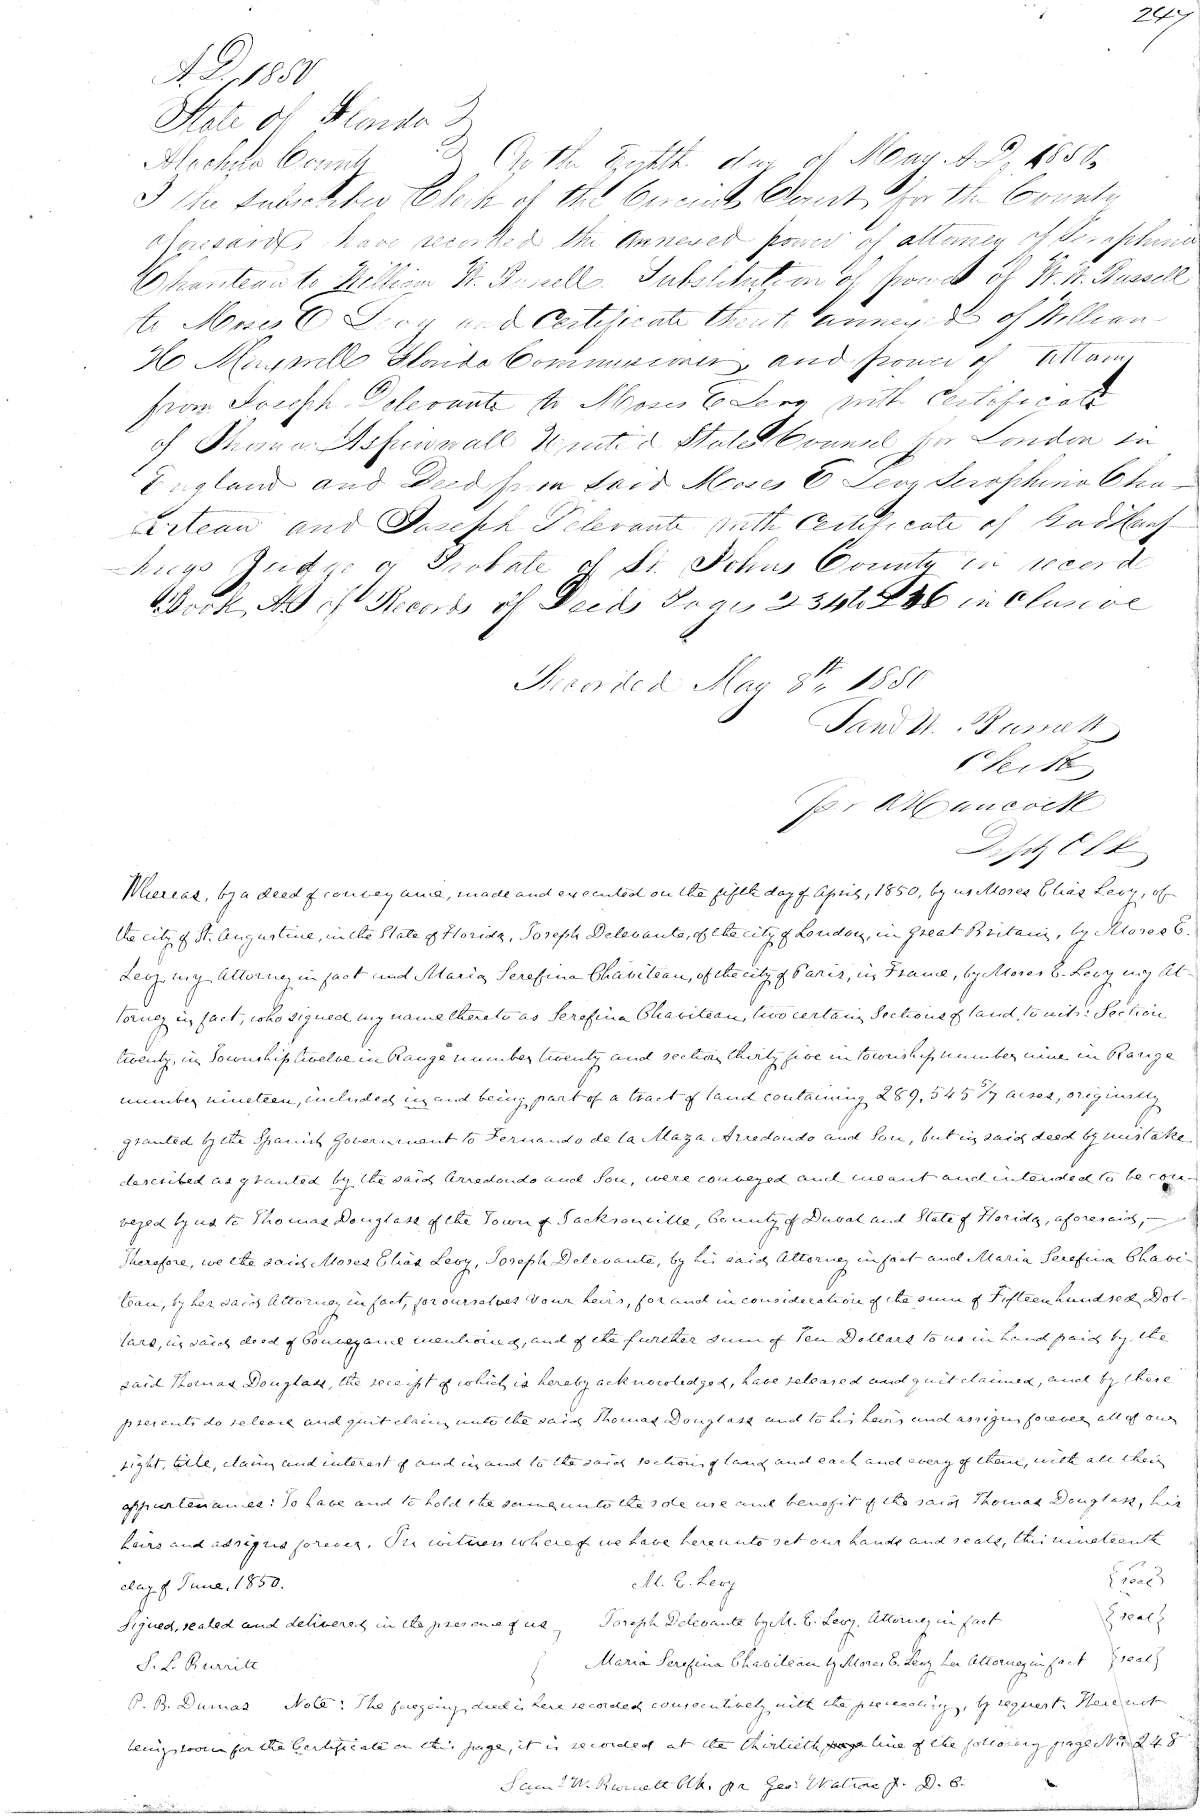 247
A.D. 1850
State of Florida }
Alachua County } On the Eighth day of May A.D. 1850,
I the subscriber Clerk of the Circuit Court for the County
aforesaid, have recorded the annexed power of attorney of Seraphina
Chauiteau to William W. Russell. Substitution of power of W. W. Russell
to Moses E Levy and Certificate thereto annexed of William
H Maxwell Florida Commissioner, and power of Attorny
from Joseph Delevante to Moses E Levy with Certificate
of Thomas Aspinwall United States Counsel for London in
England and Deed from said Moses E Levy Seraphina Cha-
-uiteau and Joseph Delevante with Certificate of Gad Hum-
-phreys Judge of Probate of St. Johns County in record
Book A of Records of Deeds Pages 234 to 246 inclusive
Recorded May 8th, 1850
Saml W. Burnett
Clerk
pr Hancock
Depty Clk
Whereas, by a deed of conveyance, made and executed on the fifth day of April, 1850, by us Moses Elias Levy, of
the city of St. Augustine, in the State of Florida, Joseph Delevante, of the city of London, in Great Britain, by Moses E.
Levy, my Attorney in fact and Maria Serefina Chaviteau, of the city of Paris, in France, by Moses E. Levy my At-
torney in fact, who signed my name thereto as Serefina Chaviteau, two certain Sections of land, to wit: Section
twenty, in Township twelve in Range number twenty and section thirty five in township number nine in Range
number nineteen, included in and being part of a tract of land containing 289,545 5/7 acres, originally
granted by the Spanish Government to Fernando de la Maza Arredondo and Son, but in said deed by mistake
described as granted by the said Arredondo and Son, were conveyed and meant and intended to be con-
veyed by us to Thomas Douglass of the Town of Jacksonville, County of Duval and State of Florida, aforesaid,—
Therefore, we the said Moses Elias Levy, Joseph Delevante, by his said Attorney in fact and Maria Serefina Chavi-
teau, by her said Attorney in fact, for ourselves & our heirs, for and in consideration of the sum of Fifteen hundred Dol-
lars, in said deed of Conveyance mentioned, and of the further sum of Ten Dollars to us in hand paid by the
said Thomas Douglass, the receipt of which is hereby acknowledged, have released and quit claimed, and by these
presents do release and quit claim unto the said Thomas Douglass and to his heirs and assigns forever all of our
right, title, claim and interest of and in and to the said sections of land and each and every of them, with all their
appurtenances: To have and to hold the same unto the sole use and benefit of the said Thomas Douglass, his
heirs and assigns forever. In witness whereof we have hereunto set our hands and seals, this nineteenth
day of June, 1850. M. E. Levy {seal}
Signed, sealed and delivered in the presence of us, Joseph Delevante by M. E. Levy, Attorney in fact {seal}
S. L. Burritt } Maria Serefina Chaviteau by Moses E. Levy her Attorney in fact {seal}
P. B. Dumas Note: The foregoing deed is here recorded consecutively with the preceeding, by request. There not
being room for the Certificate on this page, it is recorded at the thirtieth page line of the following page No. 248
Saml W. Burnett Clk. pr Geo. D. C.